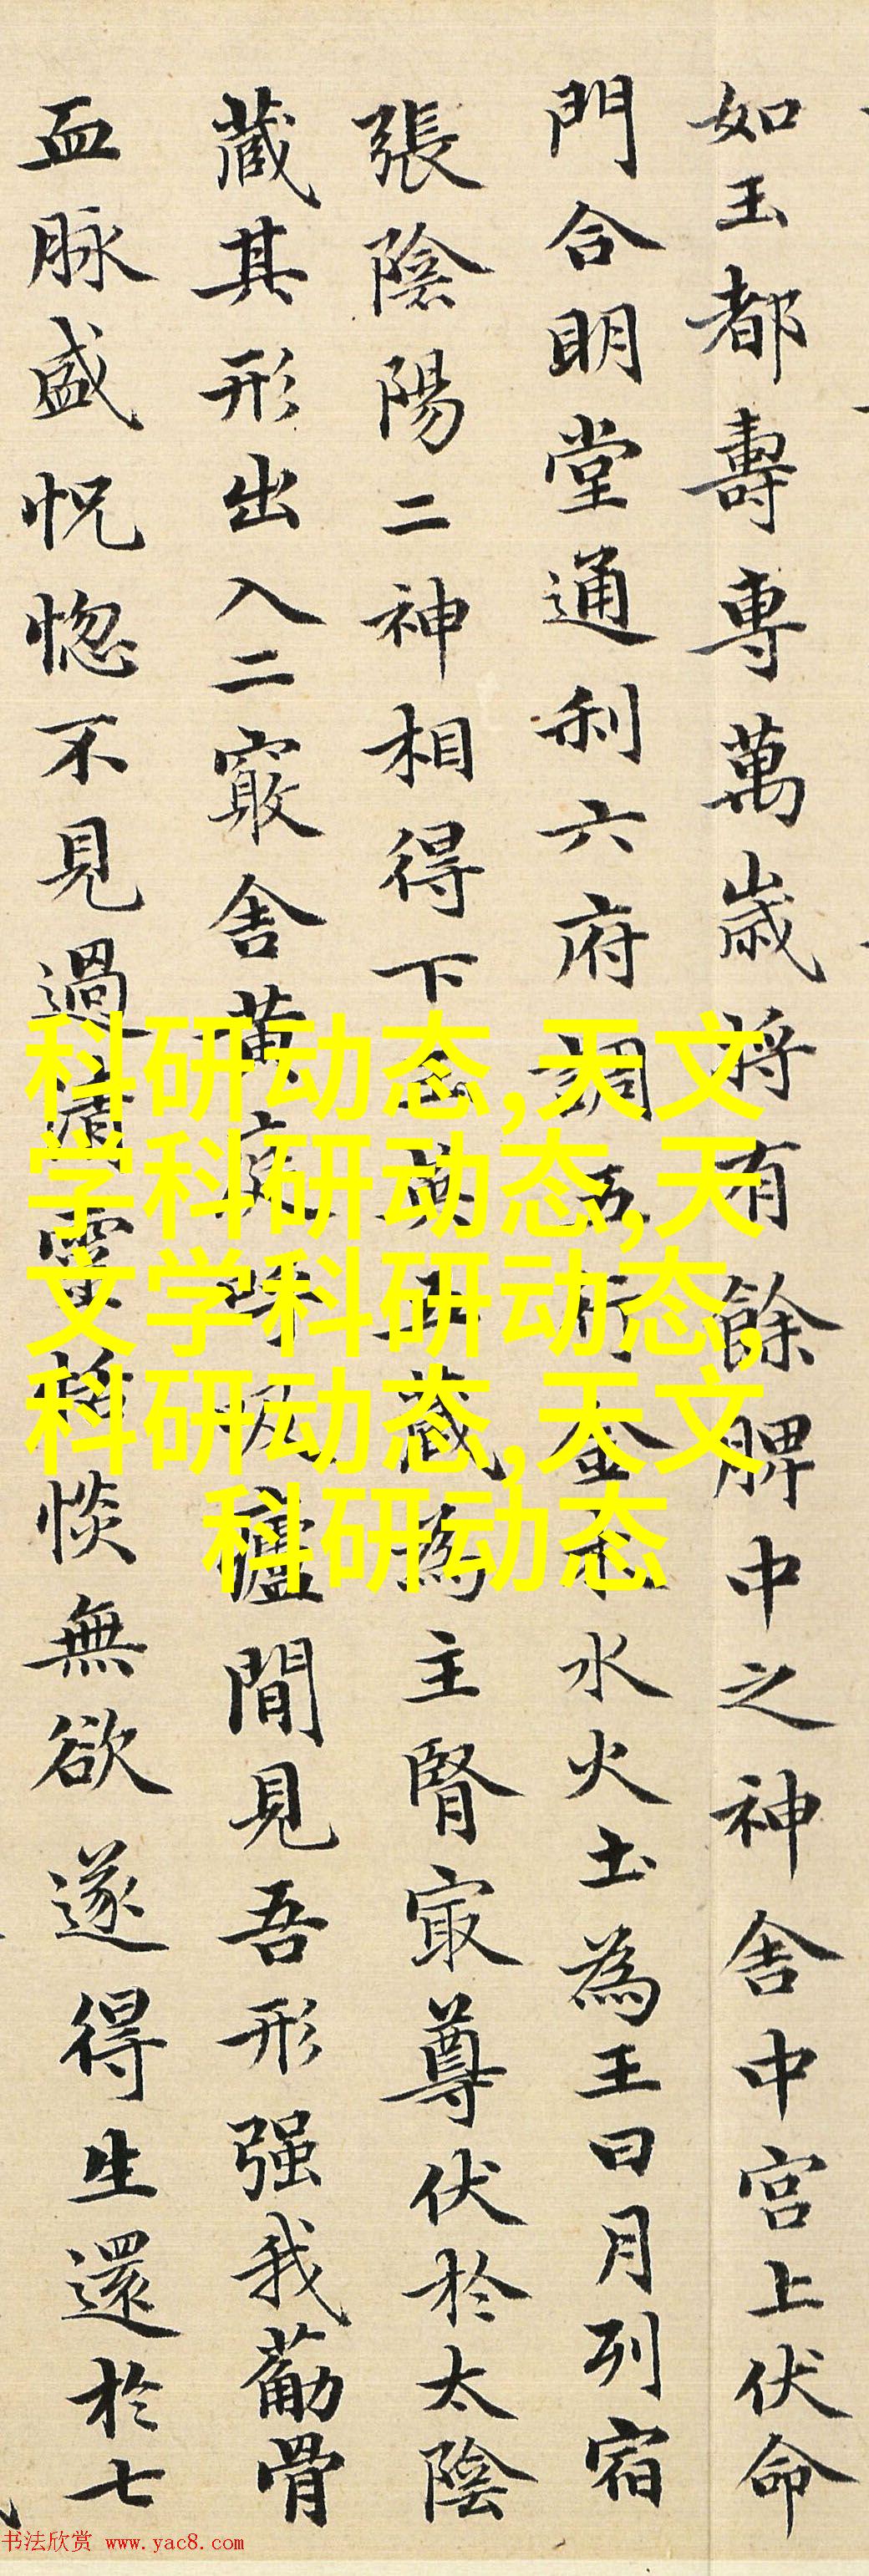 如玉都壽專萬歲將有餘脾中之神舍中宮上伏命
門合明堂通利六府調五行金木水火土為王日月列宿
張陰陽二神相得下玉英五藏為主腎㝡尊伏於太陰
藏其形出入二竅舍黄庭呼吸廬間見吾形强我葡骨
血脉盛怳惚不見過清靈恬惔無欲遂得生還於七
科研动态,天文
学科研动态,天
文学科研动态,
科研动态,天文
科研动态
书法欣赏 www.yac8.com